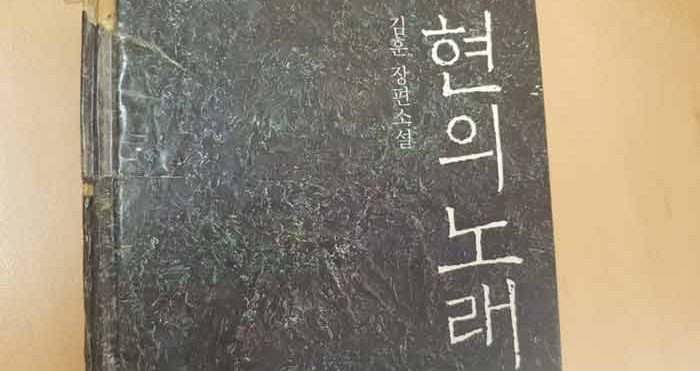 현의 노래
김훈 장편소설